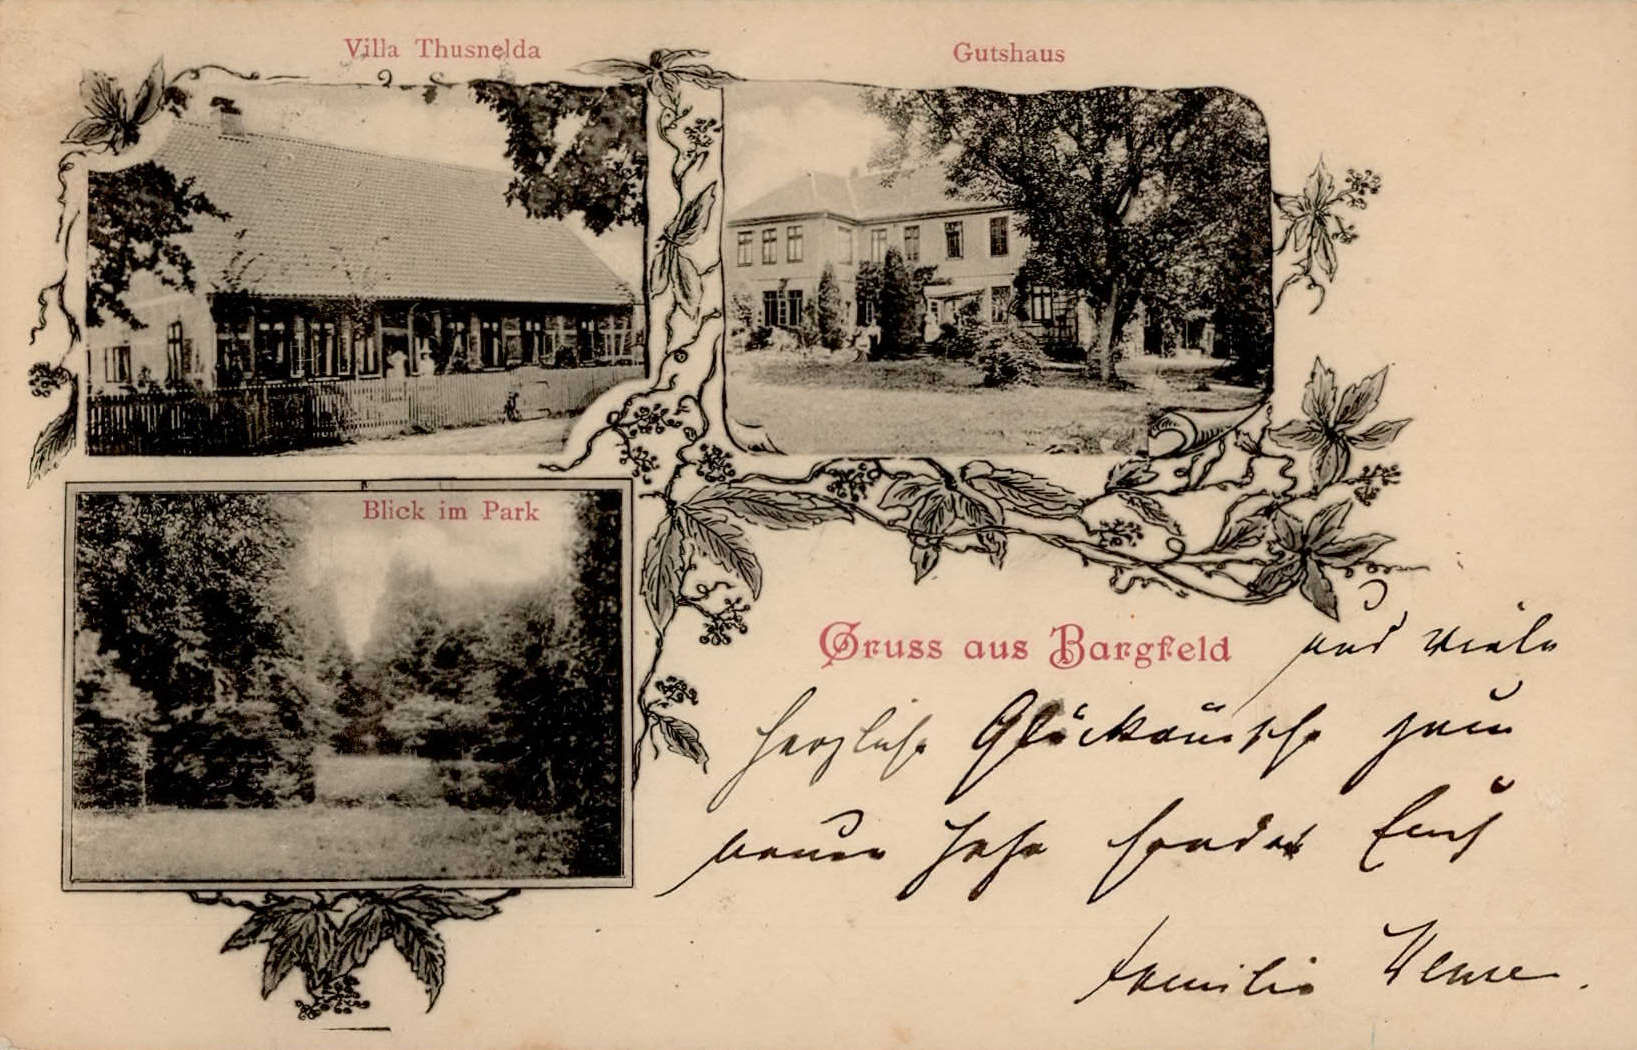 Villa Thusnelda
Gutshaus
Blick im Park
Gruss aus Bargfeld
und viele
herzliche Glückwünsche zum
neuen Jahr sendet Euch
Familie